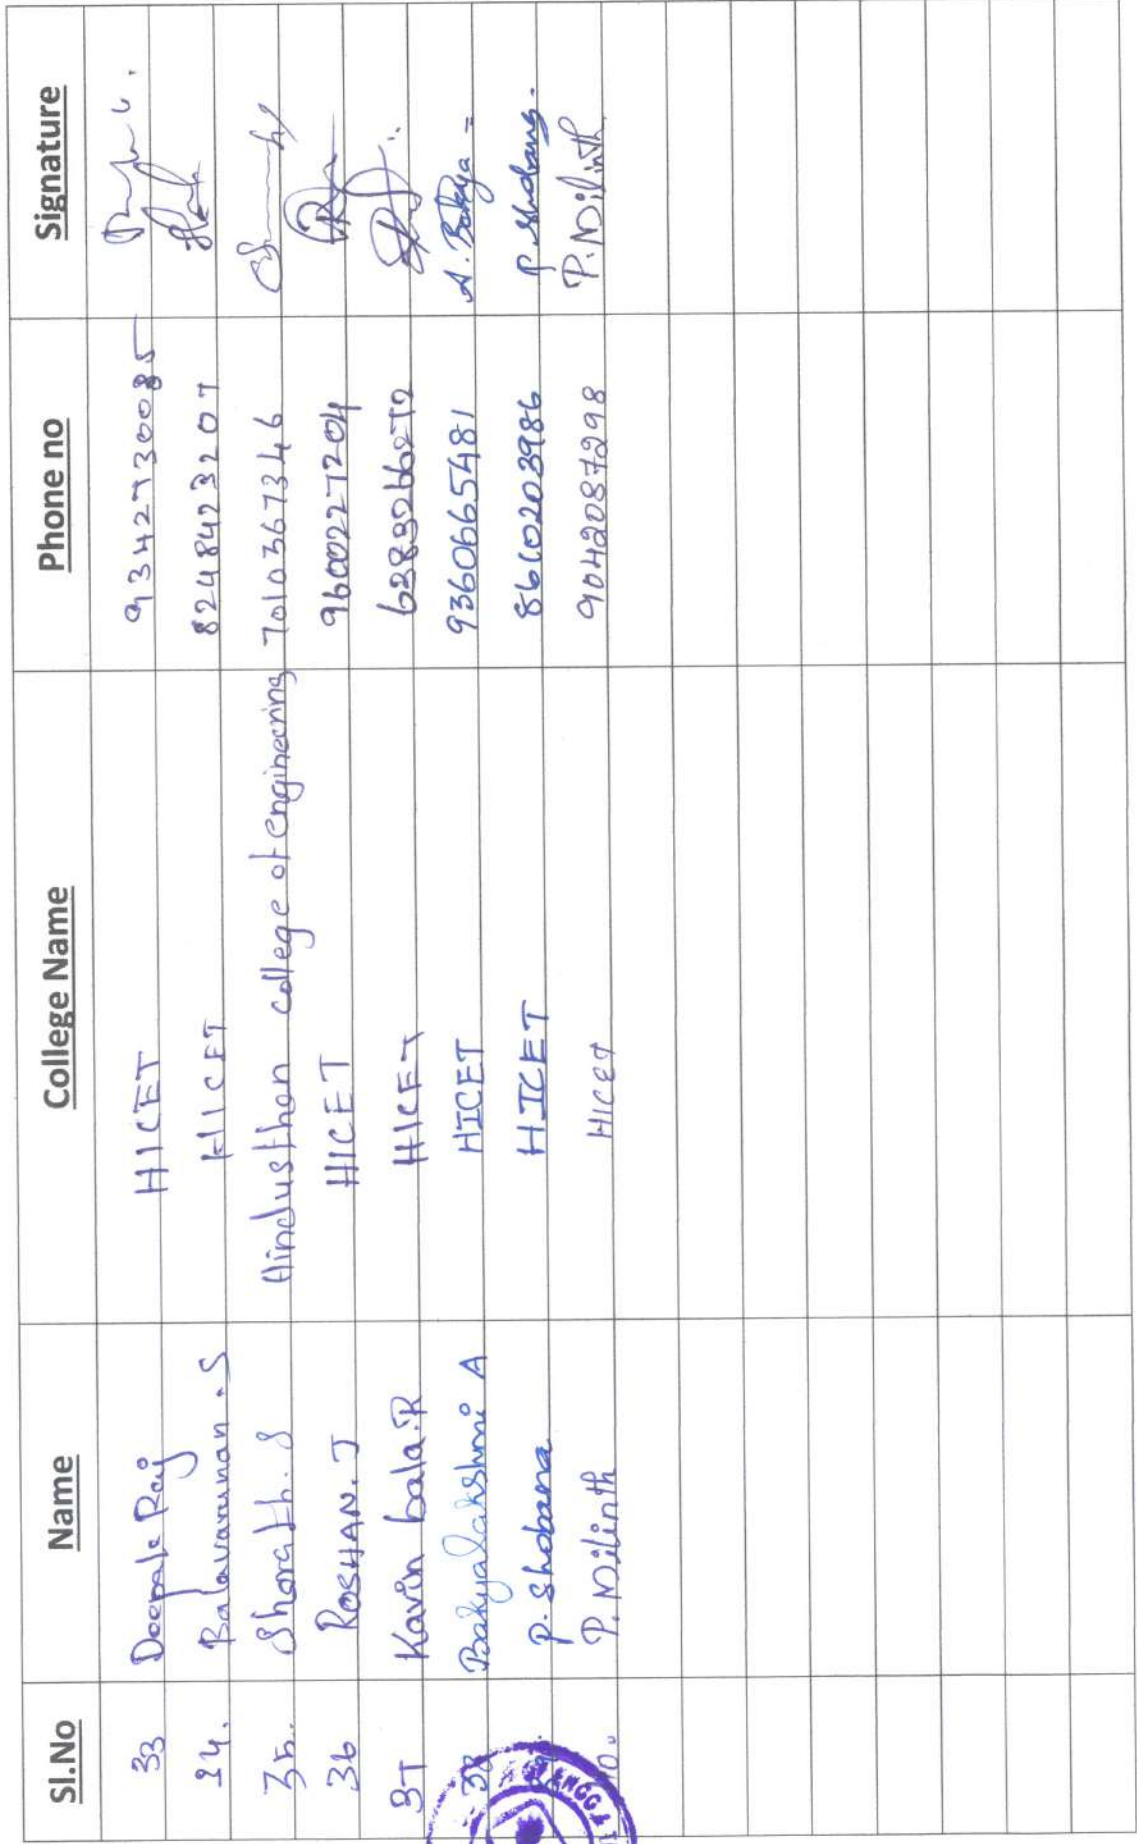 Sl.No Name College Name Phone no Signature
33 Deepak Raj HICET 9342730085
34. Balavarunan.S HICET 8248423207
35. Sharath.S Hindusthan college of engineering 7010367346
36 ROSHAN.J HICET 9600227204
37 Kavin bala.R HICET
38 Bakyalakshmi A HICET 9360665481 A. Bakya
P. Shobana HICET 8610203986 P. Shobana.
P. Nilinth HICET 9042087298 P. Nilinth